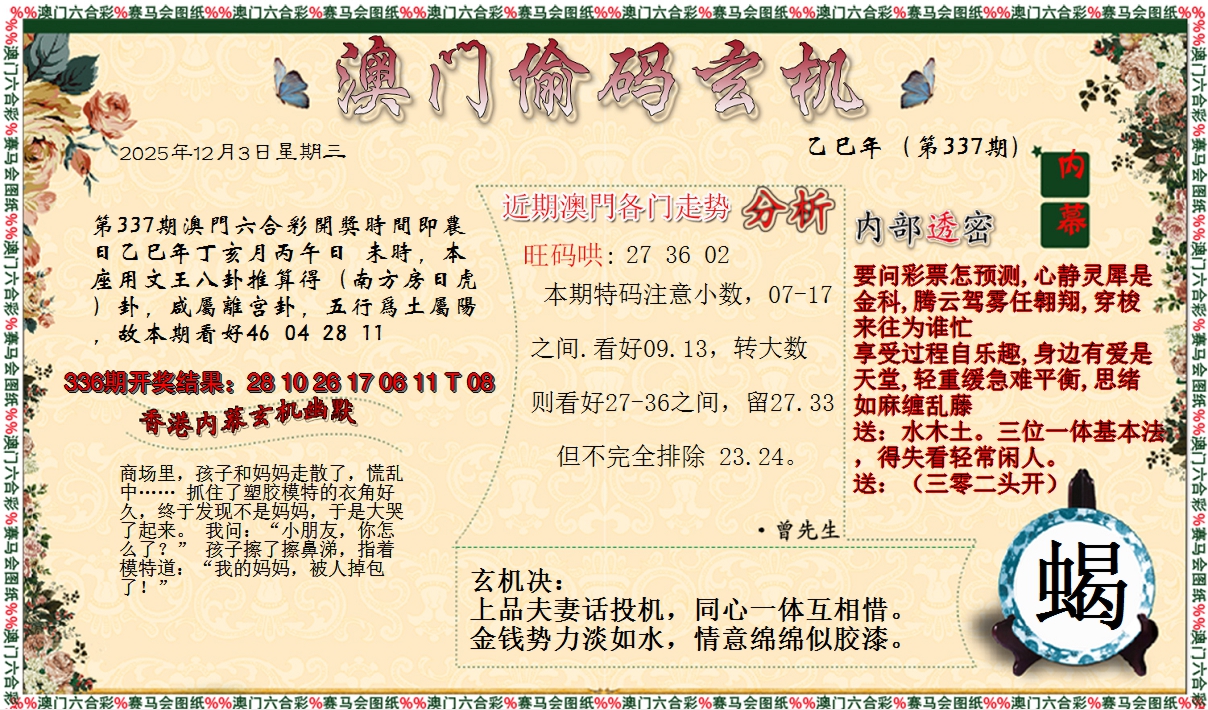 %%澳门六合彩%赛马会图纸%%澳门六合彩%赛马会图纸%%澳门六合彩%赛马会图纸%%澳门六合彩%赛马会图纸%%澳门六合彩%赛马会图纸%%澳门六合彩%赛马会图纸%%
澳门偷码玄机
2025年12月3日星期三
乙巳年（第337期）
第337期澳門六合彩開獎時間即農
日乙巳年丁亥月丙午日 未時，本
座用文王八卦推算得（南方房日虎
）卦，咸屬離宮卦，五行爲土屬陽
，故本期看好46 04 28 11
336期开奖结果：28 10 26 17 06 11 T 08
香港内幕玄机幽默
商场里，孩子和妈妈走散了，慌乱
中…… 抓住了塑胶模特的衣角好
久，终于发现不是妈妈，于是大哭
了起来。 我问：“小朋友，你怎
么了？” 孩子擦了擦鼻涕，指着
模特道：“我的妈妈，被人掉包
了！”
近期澳門各门走势 分析
旺码哄: 27 36 02
本期特码注意小数，07-17
之间.看好09.13，转大数
则看好27-36之间，留27.33
但不完全排除 23.24。
·曾先生
玄机决：
上品夫妻话投机，同心一体互相惜。
金钱势力淡如水，情意绵绵似胶漆。
内幕
内部透密
要问彩票怎预测,心静灵犀是
金科,腾云驾雾任翱翔,穿梭
来往为谁忙
享受过程自乐趣,身边有爱是
天堂,轻重缓急难平衡,思绪
如麻缠乱藤
送：水木土。三位一体基本法
，得失看轻常闲人。
送：（三零二头开）
蝎
%%澳门六合彩%赛马会图纸%%澳门六合彩%赛马会图纸%%澳门六合彩%赛马会图纸%%澳门六合彩%赛马会图纸%%澳门六合彩%赛马会图纸%%澳门六合彩%赛马会图纸%%